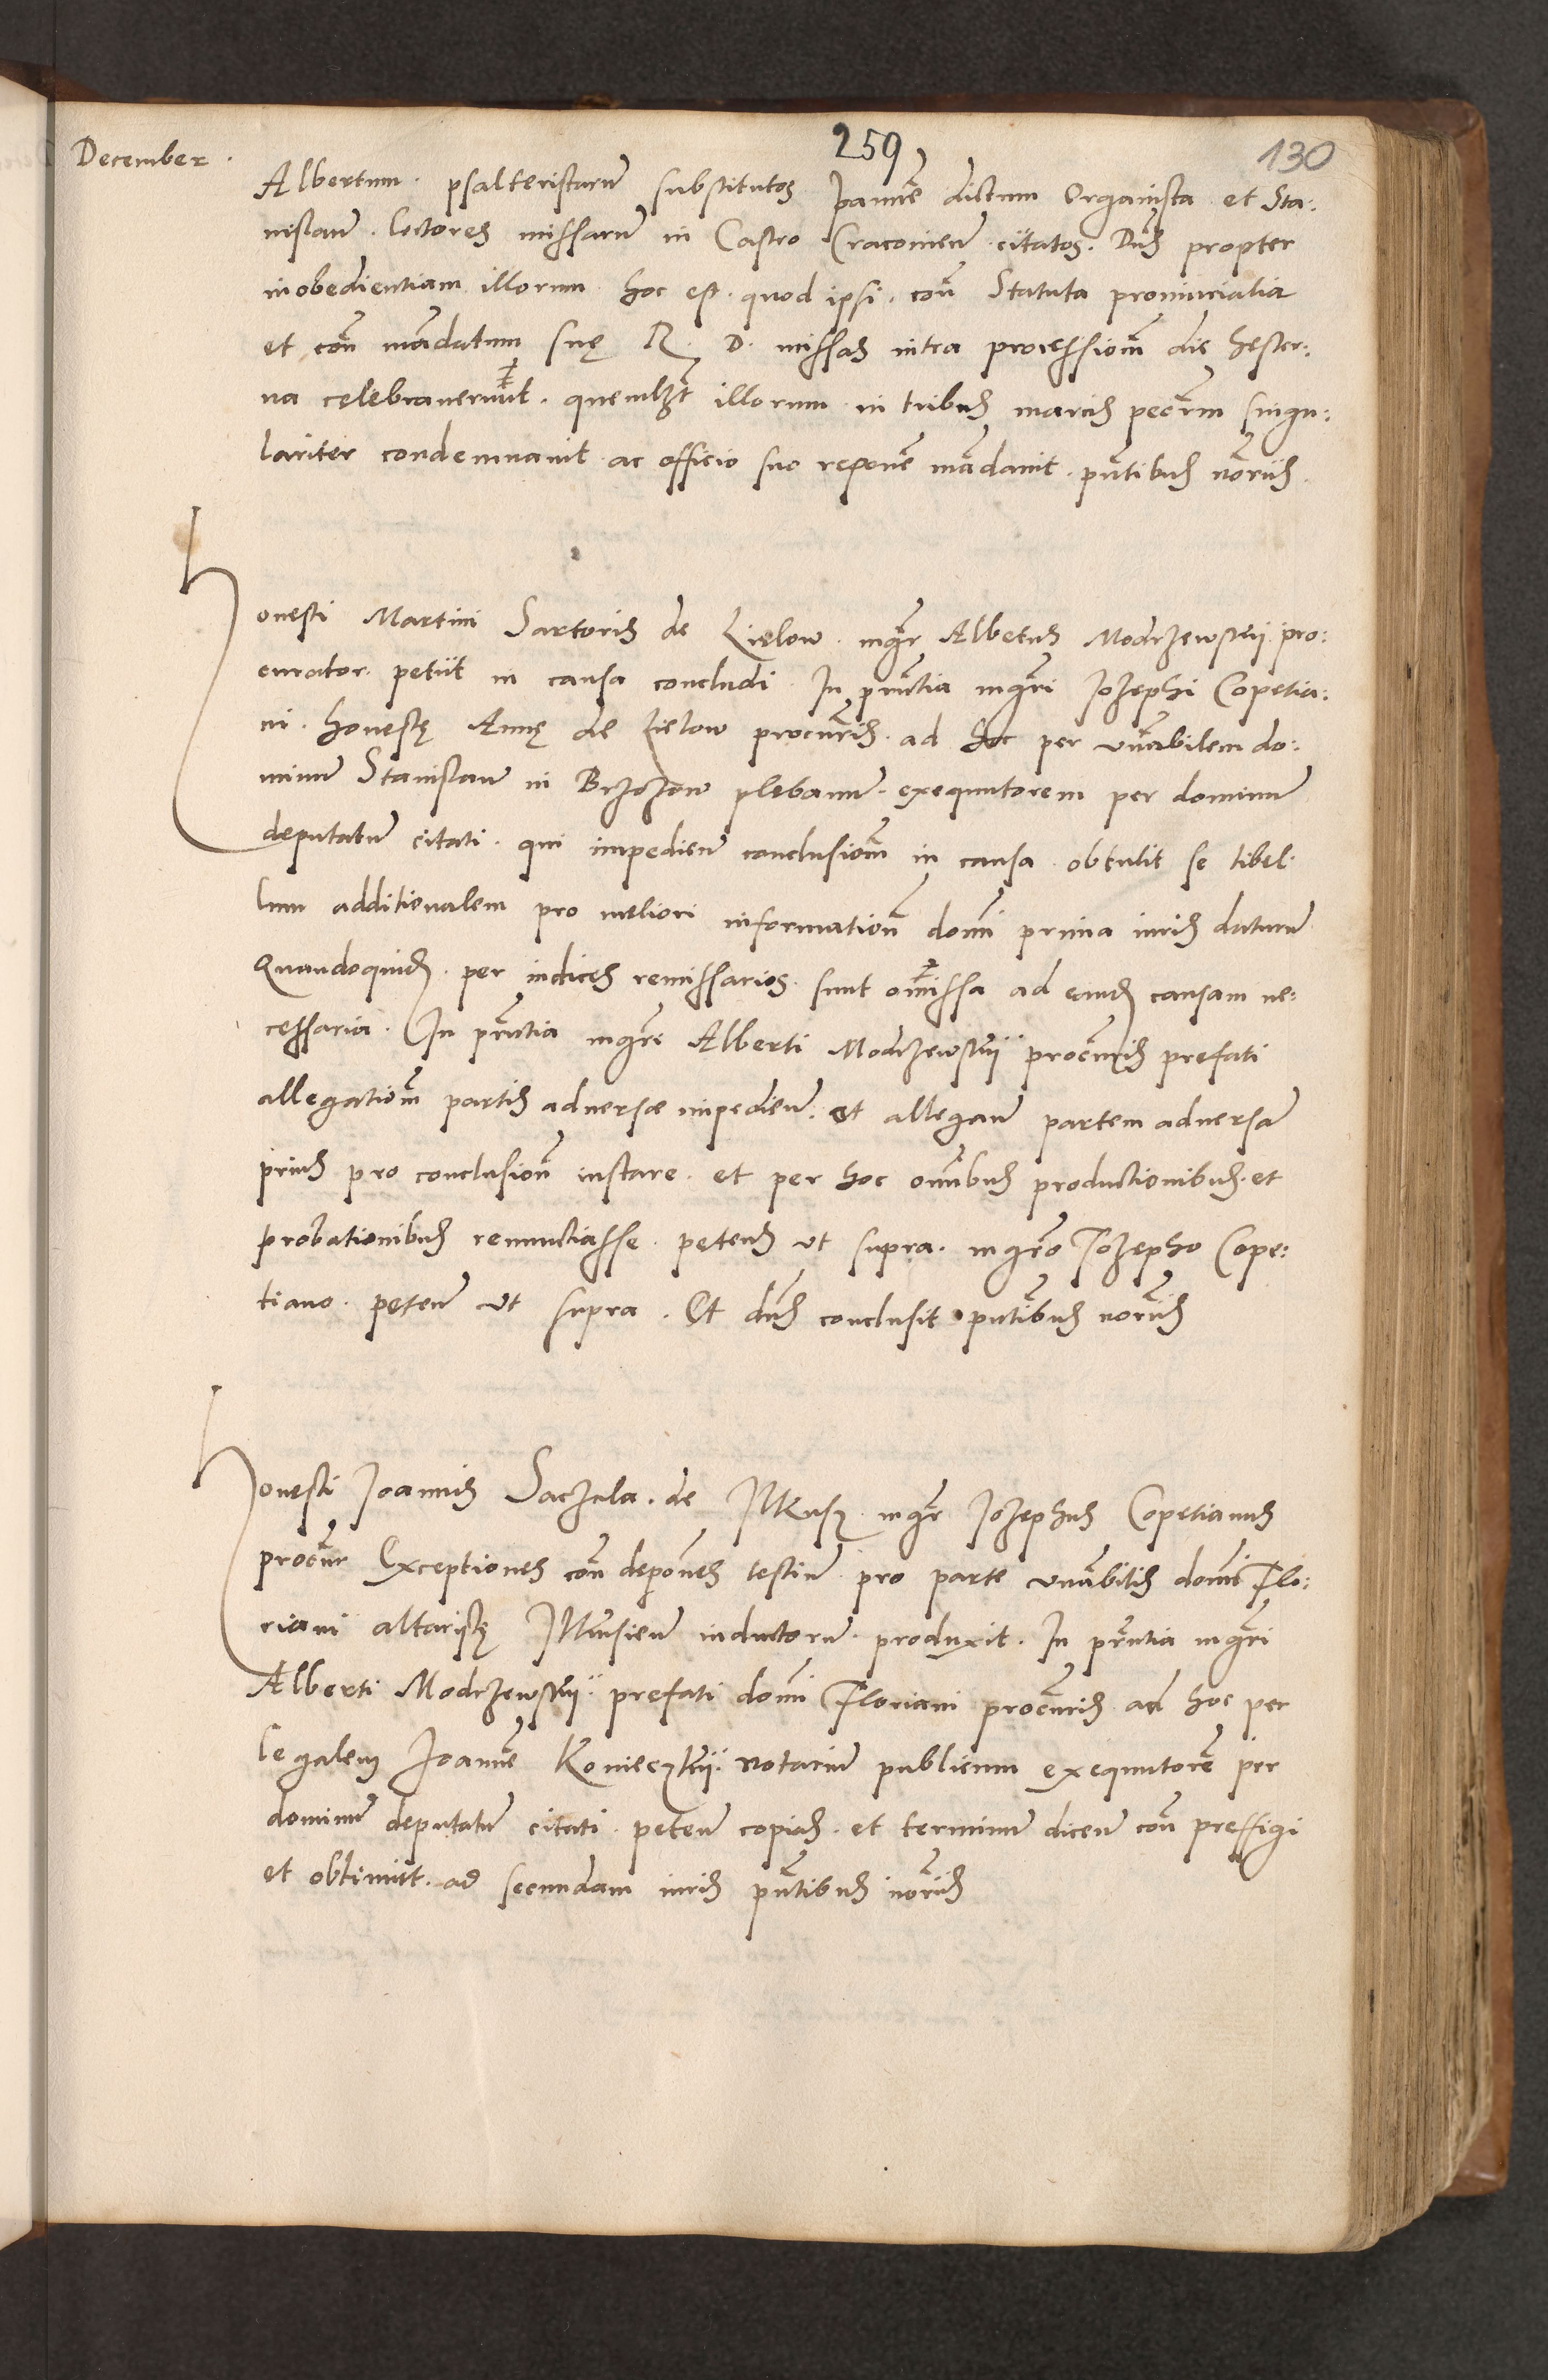 December.
259
130
Albertum. psalteristarū substitutos Joannē dictum Organista et Sta:
nislaū. lectores missarum in Castro Cracovien̄. citatos. Dn̄s propter
inobedientiam illorum hoc est. quod ipsi. con̄ Statuta provincialia
et con̄ mādatum suę R. D. missas intra processiōm die hester:
na celebraverunt. quemlꝫt illorum in tribus marcis pecn̄rm singu:
lariter condemnavit ac officio suo reponē mādavit. pn̄tibus nōriis.
Honesti Martini Sartoris de Lielow. mgr̄ Albertus Modrzewskii. pro:
curator. petiit in causa concludi. In pn̄tia mgr̄i Jozephi Copetia:
ni. honestę Annę de Lielow procur̄is. ad hoc per vn̄rabilem do:
minū Stanislaū in Brzozow plebanū. exequutorem per dominū
deputatū citati. qui impedien̄ conclusiōm in causa. obtulit se libel.
lum additionalem pro meliori informatiōn domi prima iuris daturū
Quandoquidꝫ. per iudices remissarios. sunt omissa ad eandꝫ causam ne:
cessaria. In pn̄tia mgr̄i Alberti Modrzewskii procur̄is prefati
allegatiōm partis adversæ impedien̄. et allegan̄ partem adversā
prius pro conclusiōn instare. et per hoc omn̄ibus productionibus. et
probationibus renunctiasse. petens ut supra. mgr̄o Jozepho Cope:
tiano. peten̄ ut supra. Et dn̄s conclusit pn̄tibus nōriis
Honesti Joannis Saczala. de Ilkusz mgr̄ Jozephus Copetianus
procur̄ Exceptiones con̄ depōnes testiū pro parte vn̄rabilis domi Flo:
riani altaristę Ilkusien̄ inductorū. produxit. In pn̄tia mgr̄i
Alberti Modrzewskii. prefati domi Floriani procur̄is ad hoc per
legalem Joannē Konieczkii. notariū publicum exequutorē per
dominū deputatū citati. peten̄ copias. et terminū dicen̄ con̄ preffigi
et obtinuit. ad secundam iuris pn̄tibus nōriis